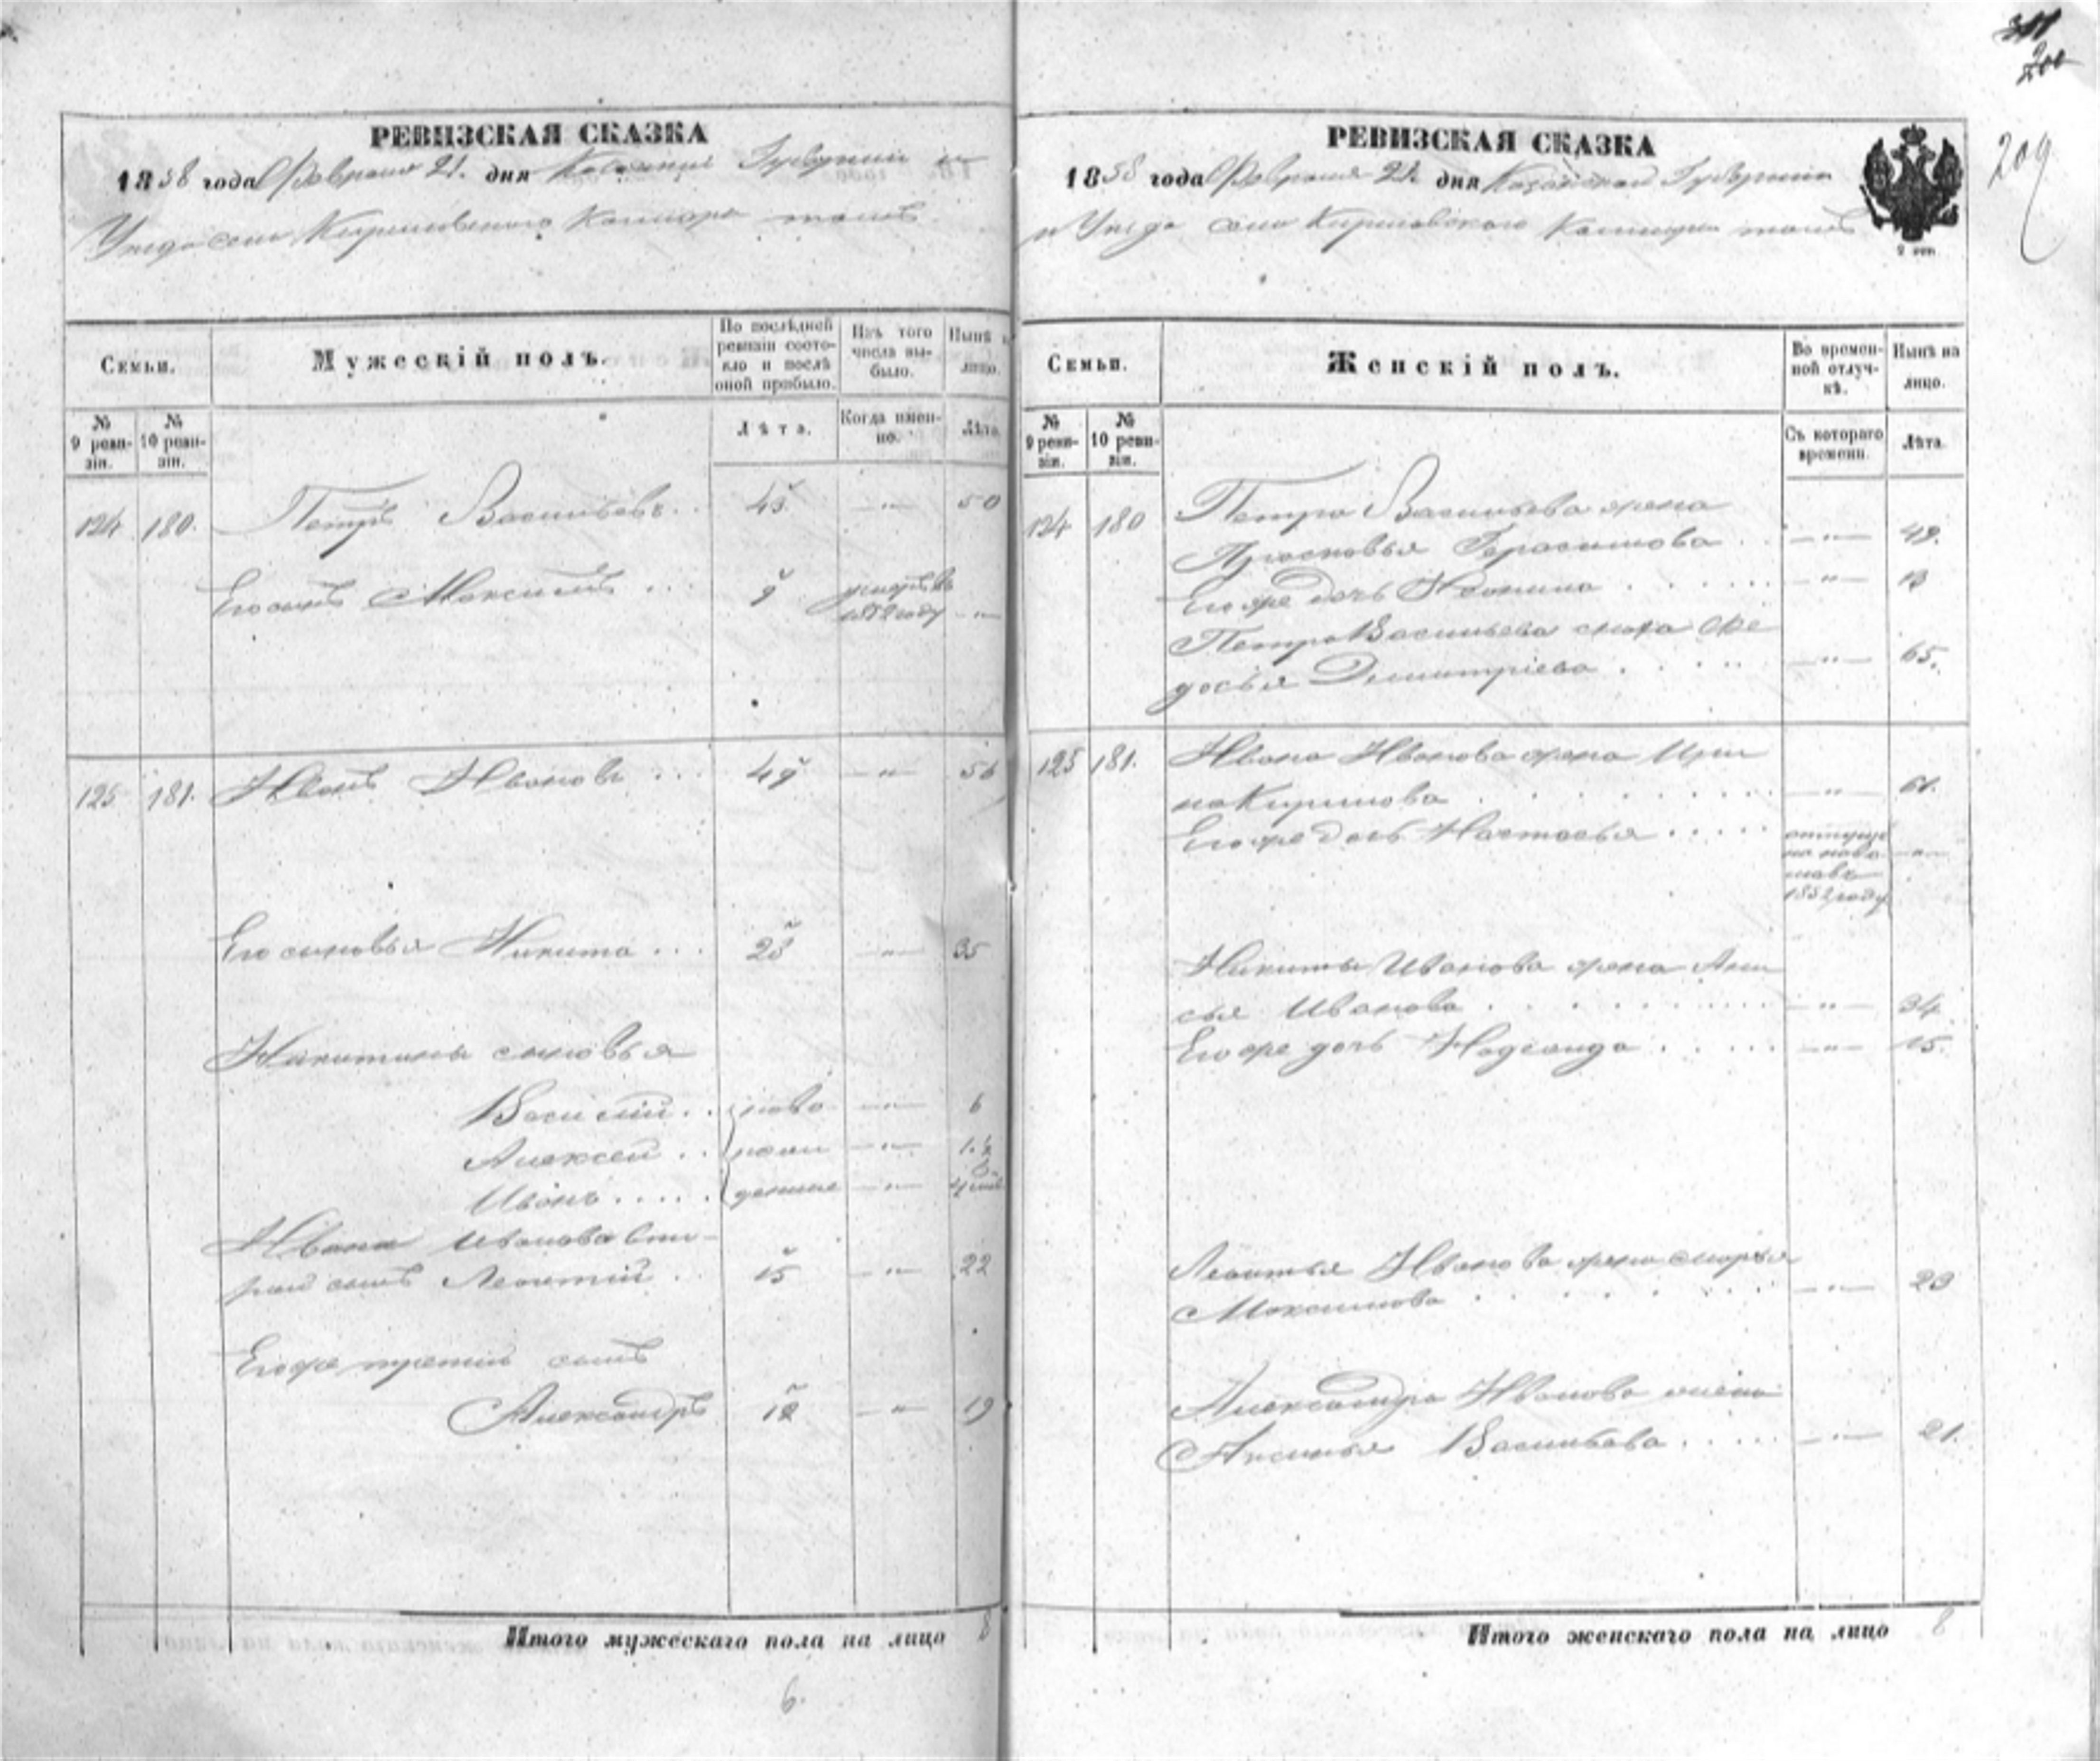 РЕВИЗСКАЯ СКАЗКА
1858 года Февраля 21. дня Казанской Губерніи и
Уезда села Кириловского тожъ
Семьи.
Мужескій полъ.
По послѣдней ревизіи состояло и послѣ оной прибыло.
Изъ того числа выбыло.
Нынѣ на лицо.
№ 9 ревизіи.
№ 10 ревизіи.
Лѣта.
Когда именно.
Лѣта.
124 180. Петръ Васильевъ.. 43 —"— 50
Его сынъ Максимъ ... 9 умеръ въ 1852 году —"—
125 181. Иванъ Ивановъ ... 49 —"— 56
Его сыновья Никита ... 28 —"— 35
Никитины сыновья
Василій .. ново —"— 6
Алексей .. рож —"—
Иванъ ..... денные —"—
Ивана Иванова вто-
рой сынъ Леонтій .. 15 —"— 22
Его же третій сынъ
Александръ 12 —"— 19
Итого мужескаго пола на лицо 8
6.
РЕВИЗСКАЯ СКАЗКА
1858 года Февраля 21. дня Казанской Губерніи
и Уезда села Кириловского тожъ
200
209
Семьи.
Женскій полъ.
Во временной отлучкѣ.
Нынѣ на лицо.
№ 9 ревизіи.
№ 10 ревизіи.
Съ котораго времени.
Лѣта.
124 180 Петра Васильева жена
Прасковья Герасимова .. —"— 49.
Его же дочь ...... —"— 13
Петра Васильева сноха Фе
досья Димитріева ..... —"— 65.
125 181. Ивана Иванова жена Ири
на Кирилова ........ —"— 61.
Его же дочь Настасья ..... —"—
1852 году
Никиты Иванова жена Ани
сья Иванова ........ —"— 34.
Его же дочь ..... —"— 15.
Леонтья Иванова жена Марья
Максимова ....... —"— 23
Александра Иванова жена
Аксинья Васильева ..... —"— 21.
Итого женскаго пола на лицо 8